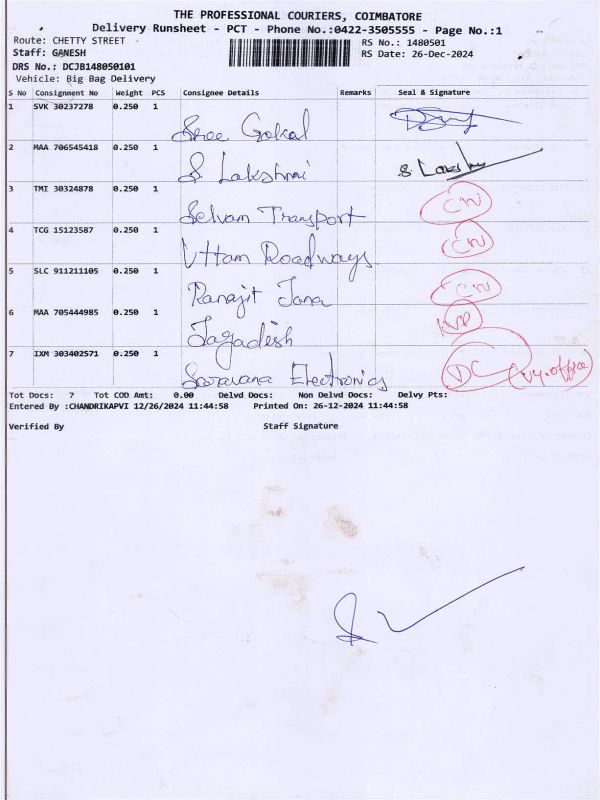 THE PROFESSIONAL COURIERS, COIMBATORE
Delivery Runsheet - PCT - Phone No.:0422-3505555 - Page No.:1
Route: CHETTY STREET RS No.: 1480501
Staff: GANESH RS Date: 26-Dec-2024
DRS No.: DCJB148050101
Vehicle: Big Bag Delivery
S No Consignment No Weight PCS Consignee Details Remarks Seal & Signature
1 SVK 30237278 0.250 1
Sree Gokul
2 MAA 706545418 0.250 1
S Lakshmi S Lakshmi
3 TMI 30324878 0.250 1
Selvam Transport CN
4 TCG 15123587 0.250 1 CN
Uttam Roadways
5 SLC 911211105 0.250 1
Ranajit Jana CN
6 MAA 705444985 0.250 1
Jagadesh
7 IXM 303402571 0.250 1
Saravana Electronics DC
Tot Docs: 7 Tot COD Amt: 0.00 Delvd Docs: Non Delvd Docs: Delvy Pts:
Entered By :CHANDRIKAPVI 12/26/2024 11:44:58 Printed On: 26-12-2024 11:44:58
Verified By Staff Signature